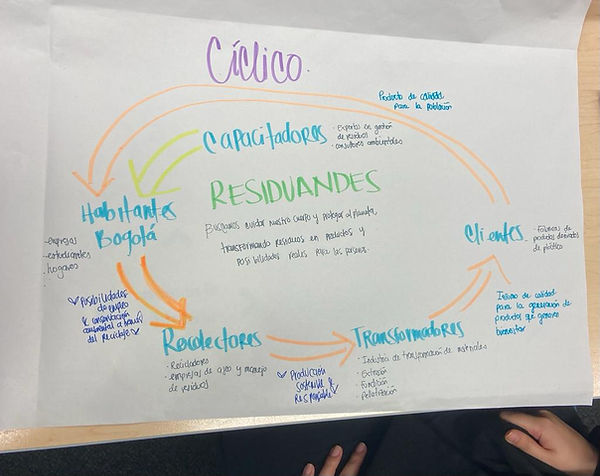 Cíclico.
Producto de calidad
para la población
CAPACITADORES
- Expertos en gestión
de residuos
- consultores ambientales
RESIDUANDES
Buscamos cuidar nuestro cuerpo y proteger el planeta,
transformando residuos en productos y
posibilidades reales para las personas.
Habitantes
Bogotá
- empresas
- estudiantes
- hogares
Posibilidades
de empleo
& conservación
ambiental a través
del reciclaje
Clientes
- Fábricas de
productos derivados
de plástico
Insumo de calidad
para la generación de
productos que generen
bienestar
Recolectores
- Recicladores
- empresas de aseo y manejo
de residuos
Producción
sostenible &
responsable
Transformadores
- Industria de transformación de materiales
- Extrusión
- Fundición
- Peletización